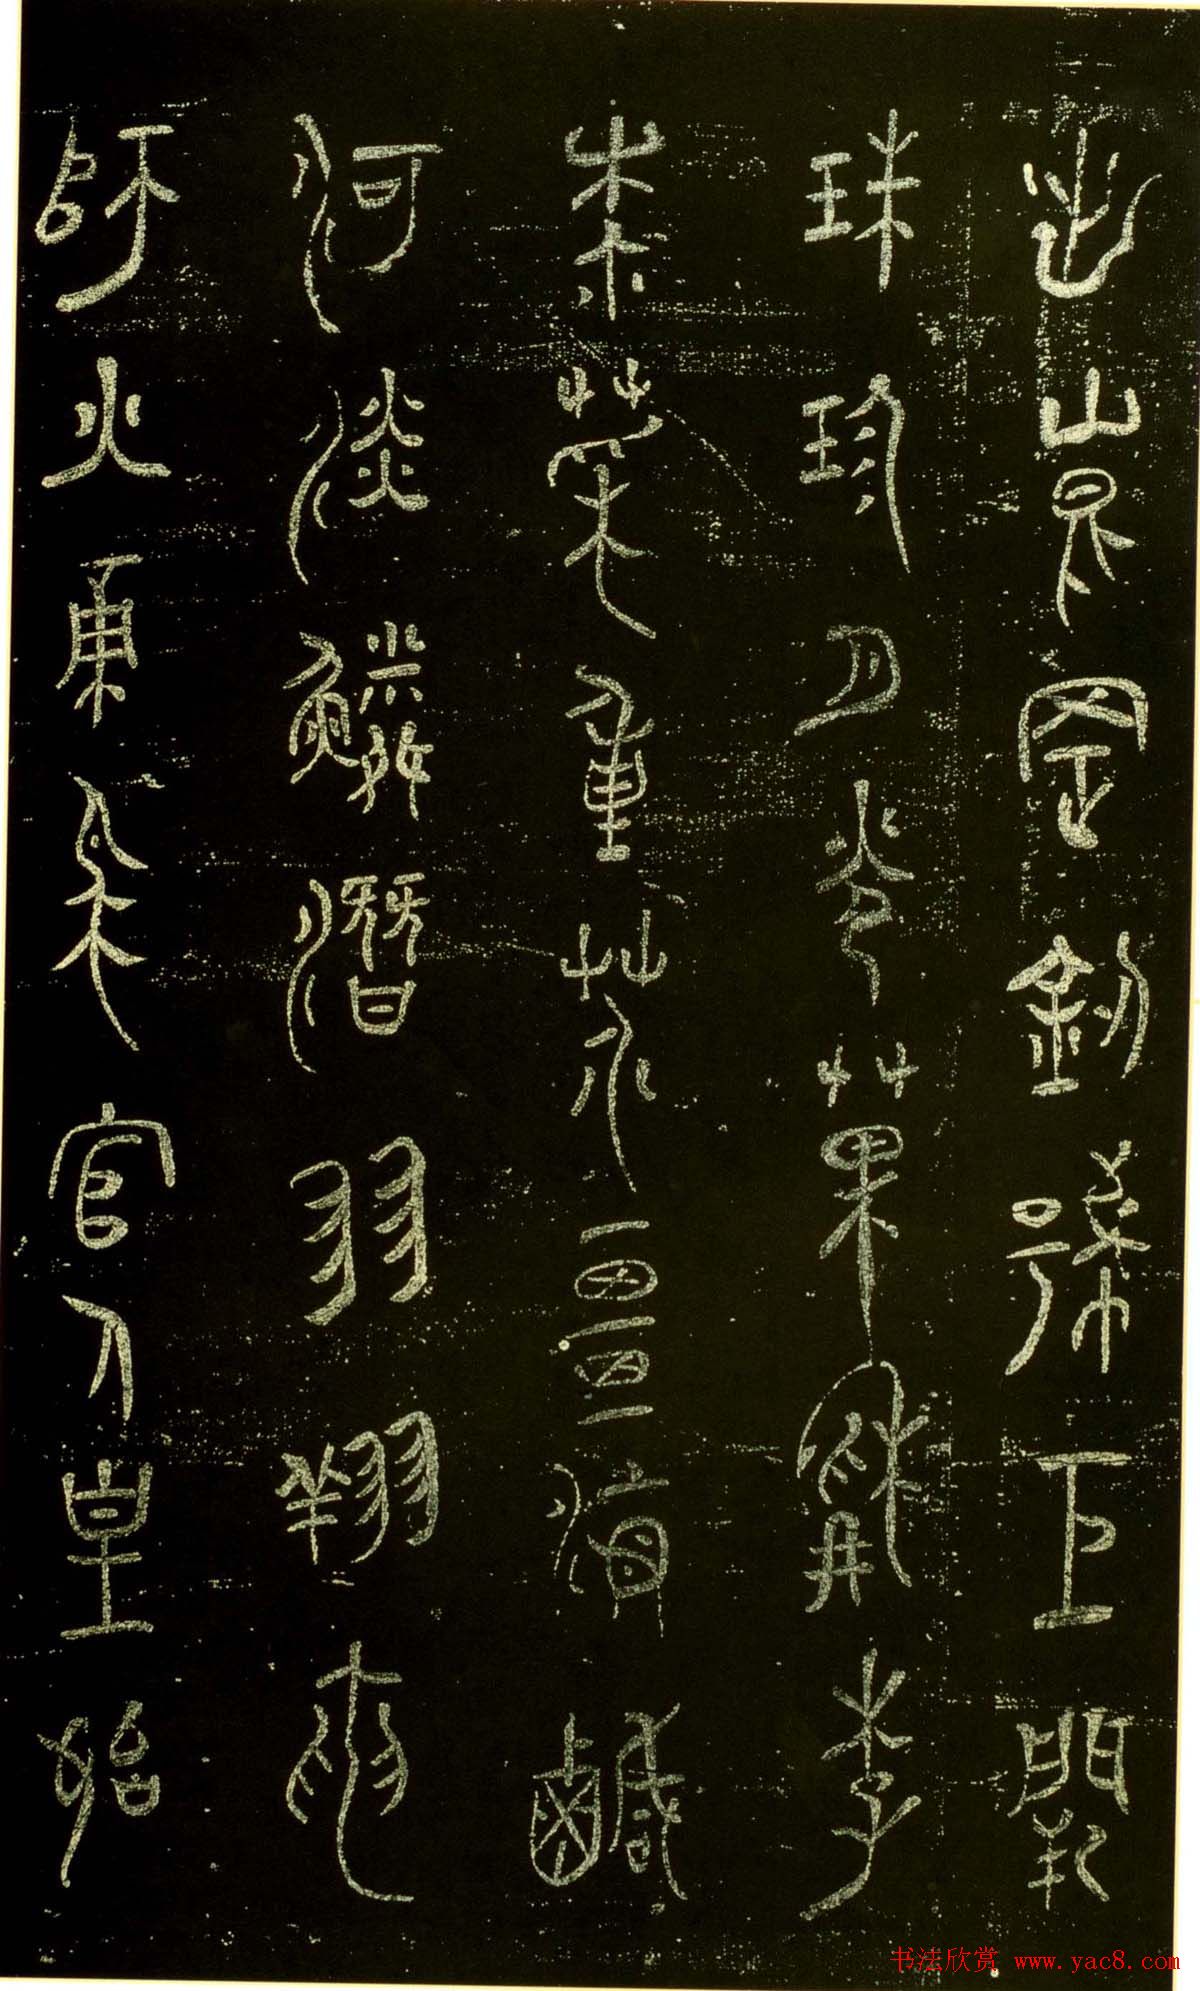 出崑岡劍號巨闕
珠珍月光菓稱李
柰菜重芥畺海鹹
河淡鱗潛羽翔龍
師火帝鳥官人皇始
书法欣赏 www.yac8.com